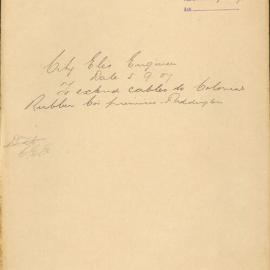 City Elec Engineer
Date 5.9.07
To extend cables to Colonial
Rubber Co's premises Paddington